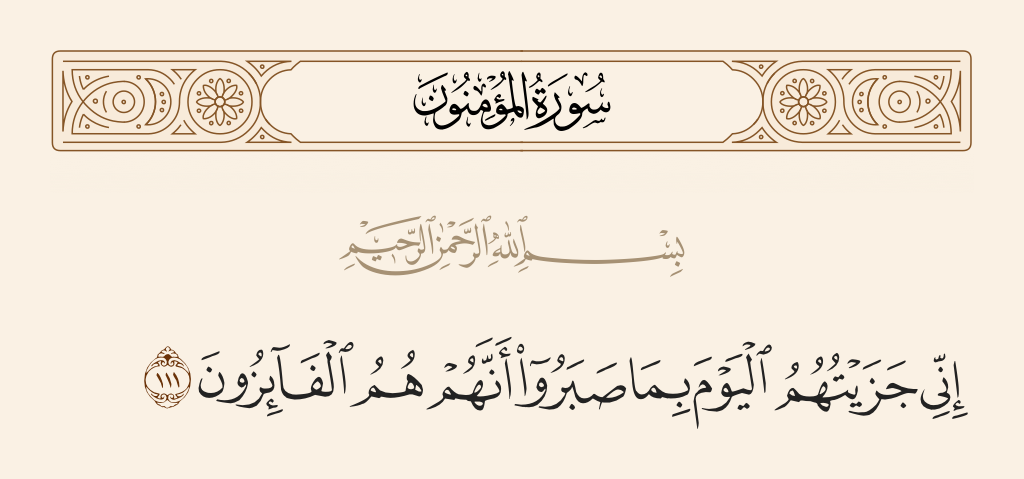 سُورَةُ المُؤْمِنُونَ
بِسْمِ ٱللَّهِ ٱلرَّحْمَٰنِ ٱلرَّحِيمِ
إِنِّى جَزَيْتُهُمُ ٱلْيَوْمَ بِمَا صَبَرُوٓا۟ أَنَّهُمْ هُمُ ٱلْفَآئِزُونَ ١١١